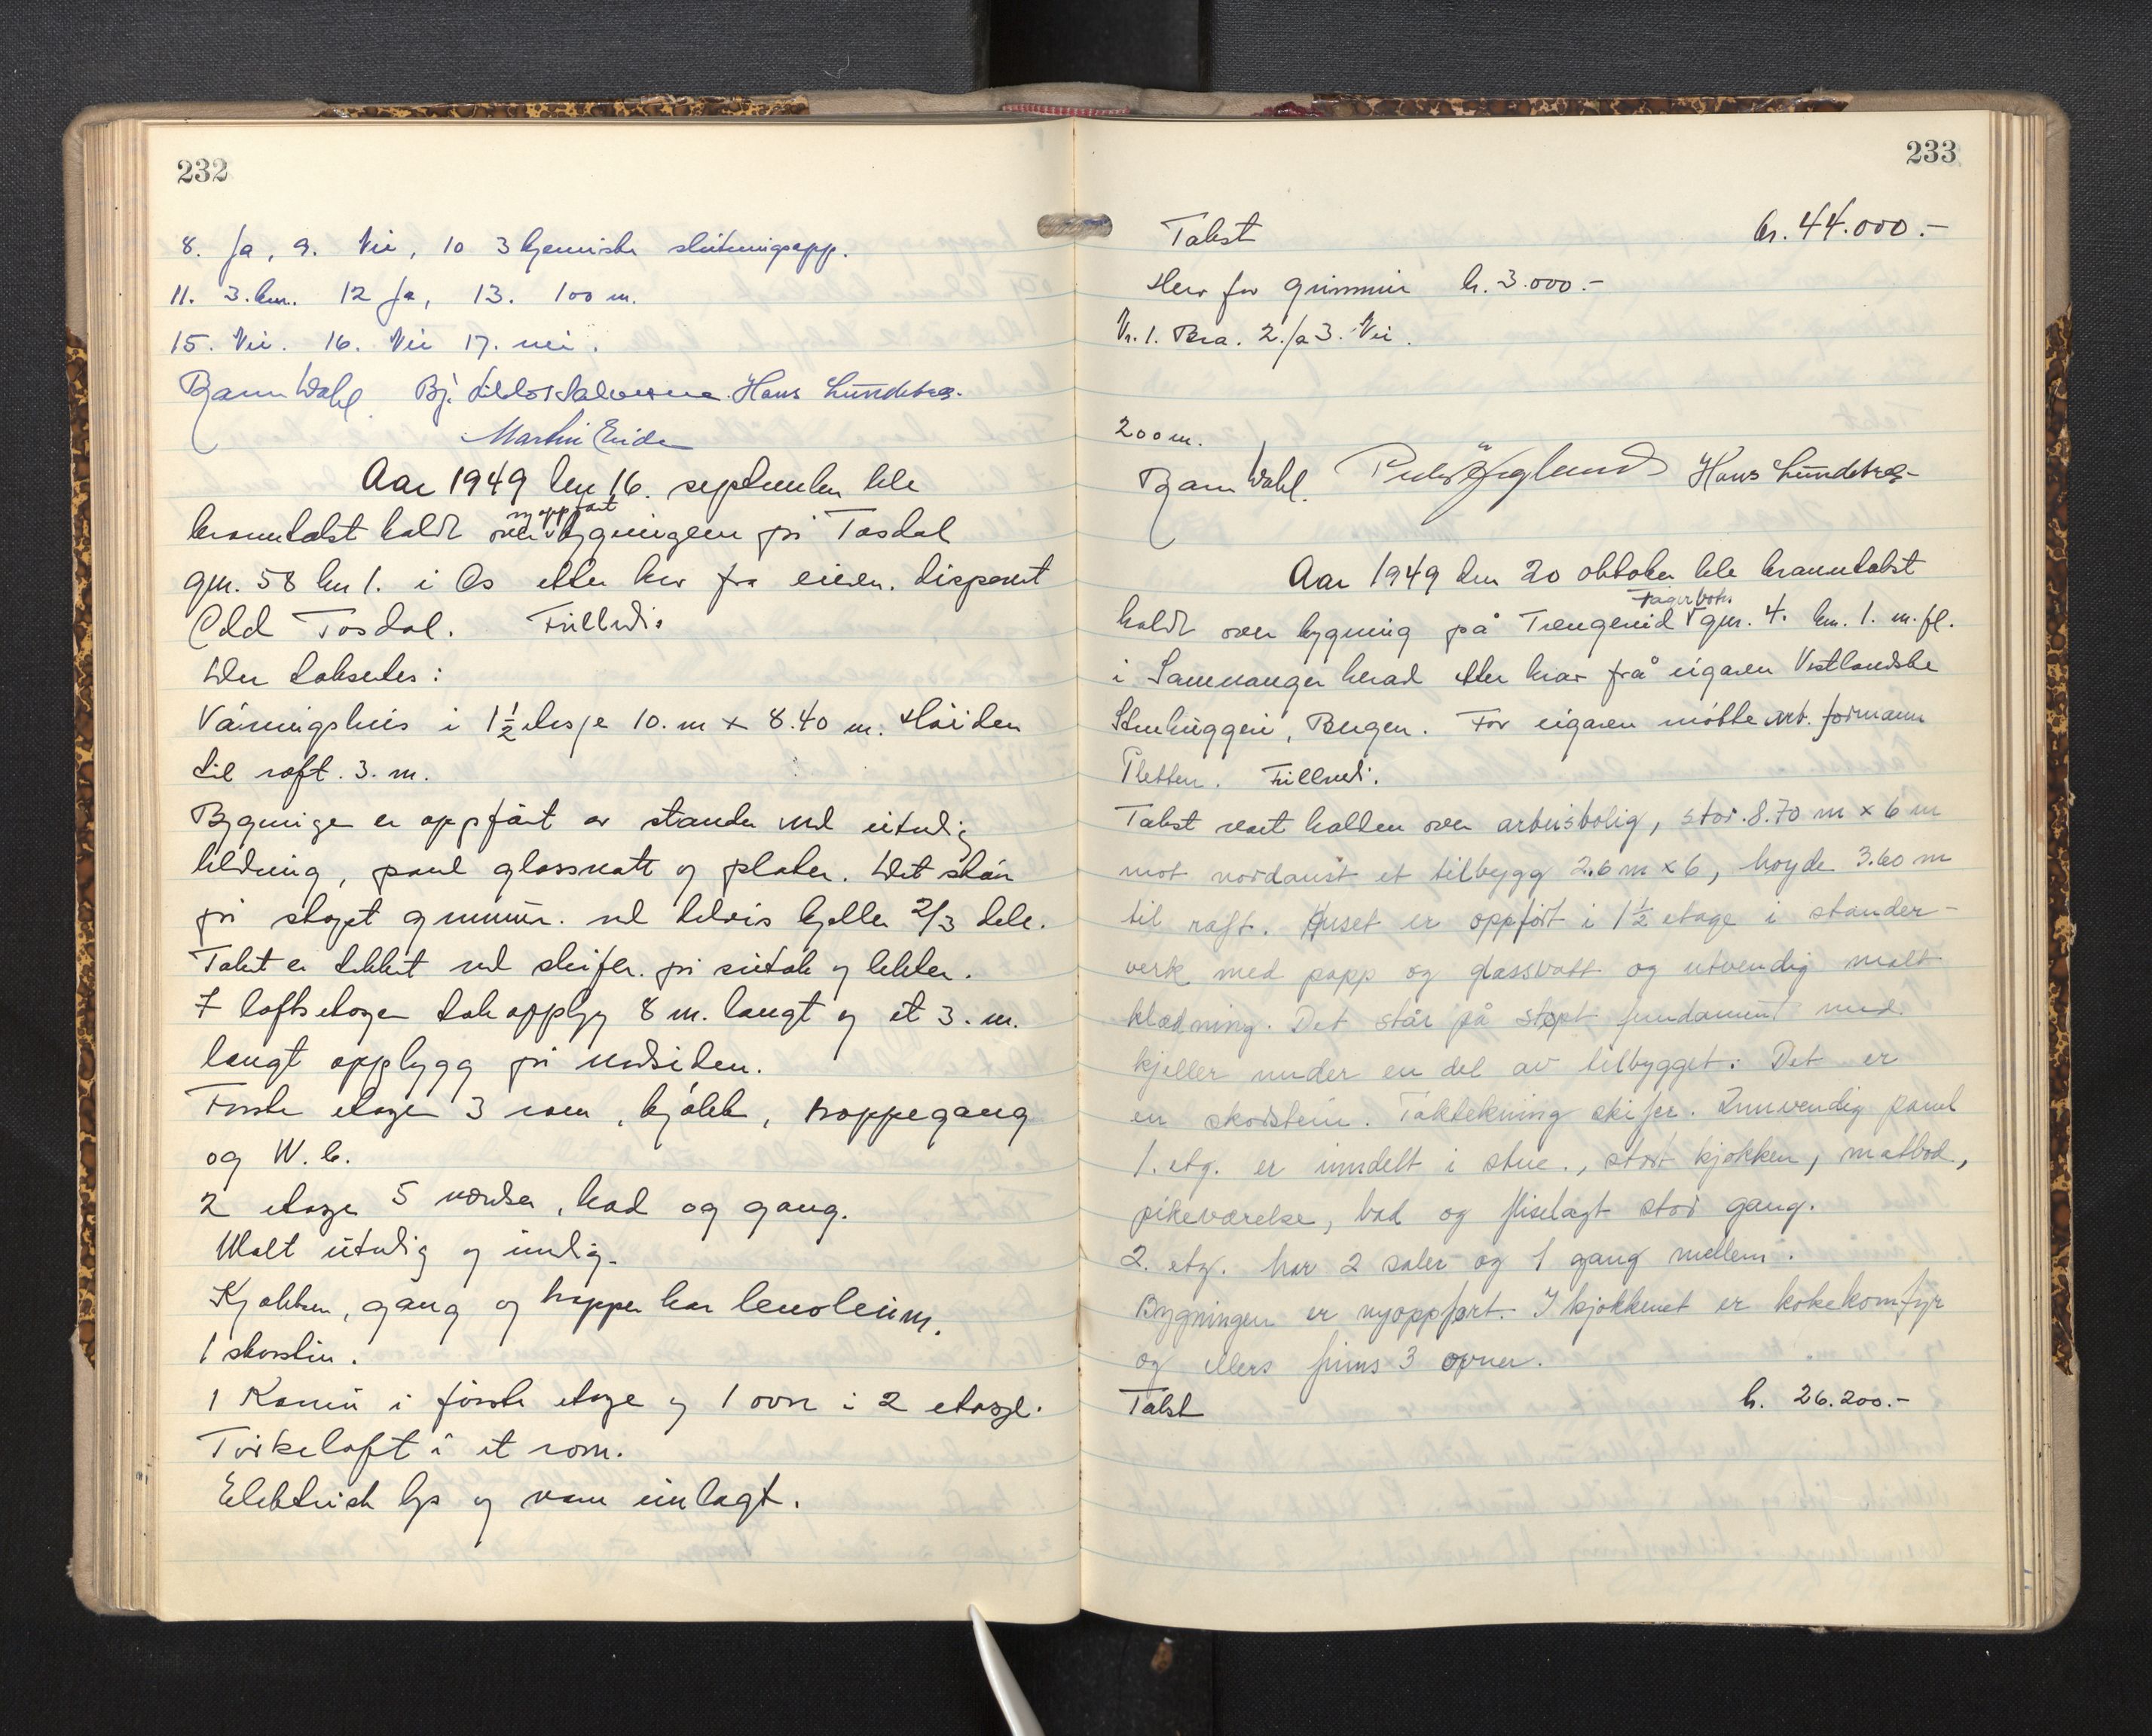 232
8. Ja, 9. Nei, 10 3 kjemiske slukningsapp.
11. 3. km. 12 Ja, 13. 100 m.
15. Nei. 16. Nei 17. nei.
Bjarne Wahl Bj. Hans Lundetræ.
Martin Eide
Aar 1949 den 16. september ble
nyoppført
branntakst holdt over bygningen på Tøsdal
gnr. 58 bnr 1. i Os etter krav fra eieren. disponent
Odd Tøsdal. Fullverdi.
Der taksertes:
Våningshus i 1½ etasje 10. m x 8.40 m. Høiden
til raft. 3. m.
Bygningen er oppført av stander med utvendig
kledning, panel glassvatt og plater. Det står
på støypt grunnmur. med delvis kjeller 2/3 dele.
Taket er tekket med skifer. på sutak og lekter.
I loftsetagen takopplyg 8 m. langt og et 3. m.
langt opplygg på nordsiden.
Første etage 3 rom, kjøkk, trappegang
og W.C.
2 etage 5 værelser, bad og gang.
Malt utvendig og innvendig.
Kjøkken, gang og trapper har lenoleum.
1 skorstein.
1 Kamin i første etage og 1 ovn i 2 etasje.
Tørkeloft i et rom.
Elektrisk lys og vann innlagt.
233
Takst kr. 44.000.-
Herav for grunnmur kr. 3.000.-
Nr. 1. Bra. 2. Ja 3. Nei.
200 m.
Bjarne Wahl. Hans Lundetræ
Aar 1949 den 20 oktober ble branntakst
Fagerbotn
holdt over bygning på Trengereid gnr. 4. bnr. 1. m. fl.
i Samnanger herad etter krav frå eigaren Vestlandske
Stenhuggeri, Bergen. For eigaren møtte arb. formann
Pletten. Fullverdi.
Takst vart halden over arbeisbolig, stor. 8.70 m x 6 m
mot nordaust et tilbygg 2.6 m x 6, høyde 3.60 m
til raft. Huset er oppført i 1½ etage i stander-
verk med papp og glassvatt og utvendig malt
kledning. Det står på støpt fundament med
kjeller under en del av tilbygget: Det er
en skorstein. Taktekning skifer. Innvendig panel
1. etg. er inndelt i stue., stort kjøkken, matbod,
pikeværelse, bad og fliselagt stor gang.
2. etg. har 2 saler og 1 gang mellem.
Bygningen er nyoppført. I kjøkkenet er kokekomfyr
og ellers finns 3 ovner.
Takst kr. 26.200.-